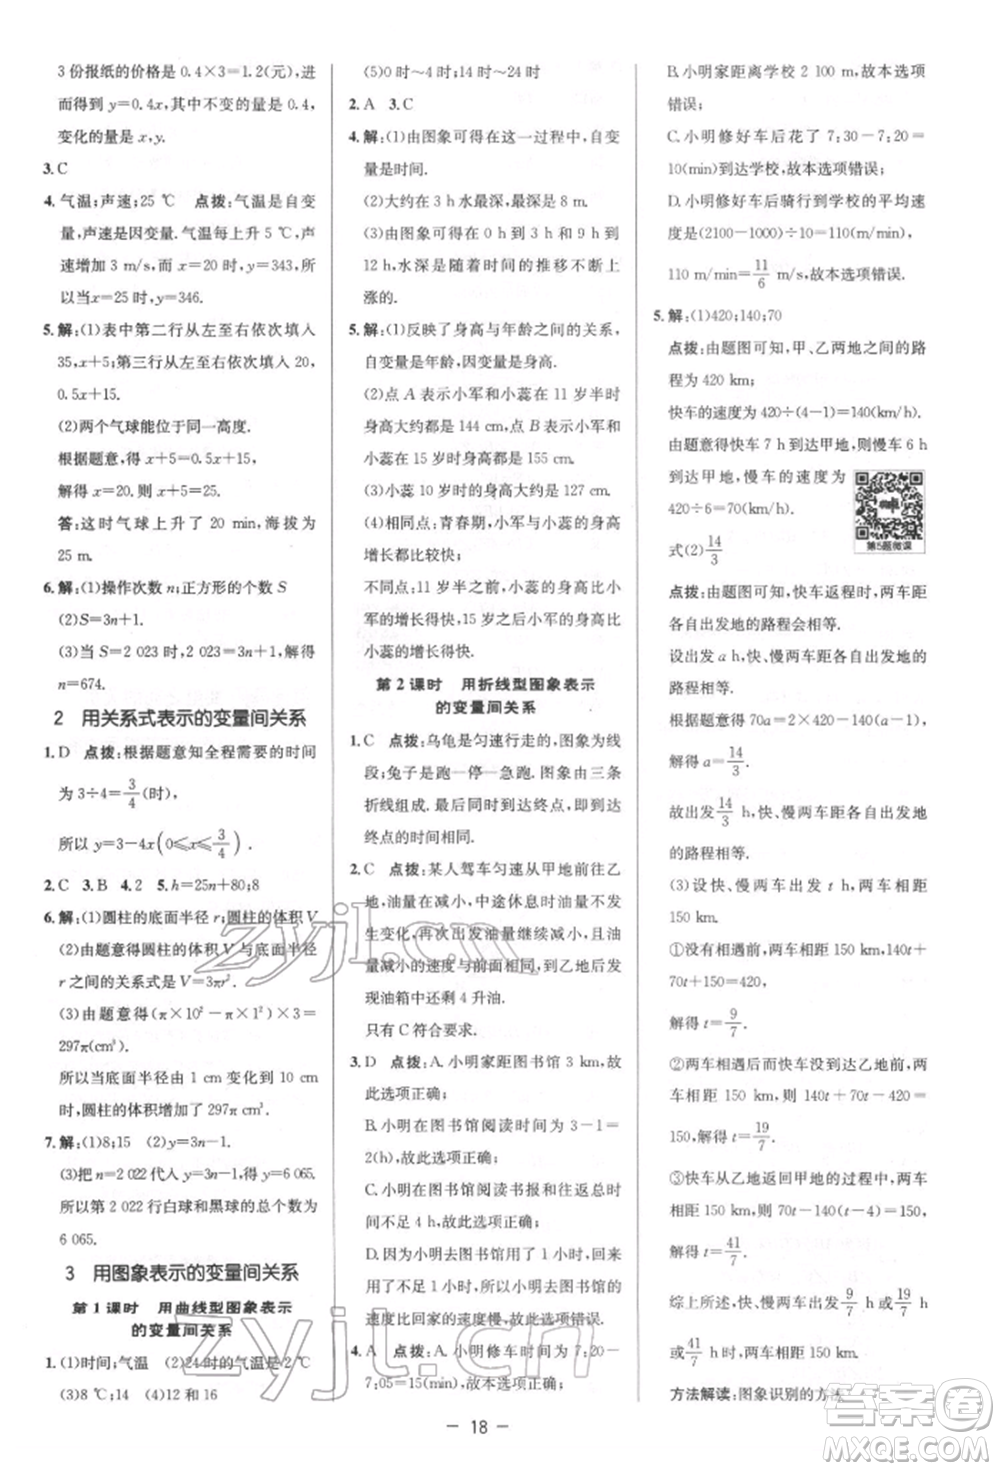 3 份报纸的价格是 0.4×3=1.2(元),进
而得到 y=0.4x,其中不变的量是 0.4,
变化的量是 x,y.
3. C
4. 气温;声速;25 ℃ 点拨:气温是自变
量,声速是因变量.气温每上升 5 ℃,声
速增加 3 m/s,当 x=20 时,y=343,所
以当 x=25 时,y=346.
5. 解:(1)表中第二行从左至右依次填入
35,x+5;第三行从左至右依次填入 20,
0.5x+15.
(2)两个气球能位于同一高度.
根据题意得,x+5=0.5x+15,
解得 x=20.所以 x+5=25.
答:这时气球上升了 20 min,海拔为
25 m.
6. 解:(1)操作次数 n;正方形的个数 S
(2)S=3n+1.
(3)当 S=2 023 时,3n+1=2 023,解得
n=674.
2 用关系式表示的变量间关系
1. D 点拨:根据题意知全程需要的时间
为 3÷4=3/4(时),
所以 y=3-4x(0≤x≤3/4).
2. C 3. B 4. 2 5. h=25n+80;8
6. 解:(1)圆柱的底面半径 r;圆柱的体积 V
(2)由题意得圆柱的体积 V 与底面半径
r 之间的关系式是 V=3πr².
(3)由题意得(π×10²-π×1²)×3=
297π(cm³)
所以当底面半径由 1 cm 变化到 10 cm
时,圆柱的体积增加了 297π cm³.
7. 解:(1)8;15 (2)y=3n-1.
(3)把 n=2 022 代入 y=3n-1,得 y=6 065.
故第 2 022 行白球和黑球的总个数为
6 065.
3 用图象表示的变量间关系
第 1 课时 用曲线型图象表示
的变量间关系
1. (1)时间;气温 (2)24 时的气温是 2 ℃
(3)8 ℃;14 (4)12 和 16
(5)0 时~4 时;14 时~24 时
2. A 3. C
4. 解:(1)由图象可得在这一过程中,自变
量是时间.
(2)大约在 3 h 水最深,最深是 8 m.
(3)由图象可得,在 0 h 到 3 h 和 9 h 到
12 h,水深是随着时间的推移不断上
涨的.
5. 解:(1)反映了身高与年龄之间的关系,
自变量是年龄,因变量是身高.
(2)点 A 表示小军和小蕊在 11 岁半时
的身高都是 144 cm,点 B 表示小军和
小蕊在 15 岁时的身高都是 155 cm.
(3)小蕊 10 岁时的身高大约是 127 cm.
(4)相同点:青春期,小军与小蕊的身高
增长都比较快;
不同点:11 岁半之前,小蕊的身高比小
军的增长得快,15 岁之后小军的身高比
小蕊的增长得快.
第 2 课时 用折线型图象表示
的变量间关系
1. C 点拨:乌龟是匀速行走的,图象为线
段;兔子是跑—停—急跑.图象由三条
折线组成.最后同时到达终点,即到达
终点的时间相同.
2. C 点拨:某人驾车匀速从甲地前往乙
地,油量在减小,中途休息时油量不
发生变化.再次出发油量继续减小,且油
量减小的速度与前面相同,到乙地后
发现油箱中还剩 4 升油.
只有 C 符合要求.
3. D 点拨:A.小明家距图书馆 3 km,故此
选项正确;
B.小明在图书馆阅读时间为 3-1=
2(h),故此选项正确;
C.小明在图书馆阅读书报和往返总时
间不足 4 h,故此选项正确;
D.因为小明去图书馆的时间比回家的
时间不足长,所以小明去图书馆的速度比
回家的速度慢,故此选项错误.
4. A 点拨:A.小明修车时间为 7:20-
7:05=15(min),故本选项正确;
B.小明家距离学校 2 100 m,故本选项
错误;
C.小明修好车后花了 7:30-7:20=
10(min)到达学校,故本选项错误;
D.小明修好车后骑行到学校的平均速
度是(2100-1000)÷10=110(m/min),
110 m/min=11/6 m/s,故本选项错误.
5. 解:(1)420;140;70
点拨:由题图可知,甲、乙两地之间的路
程为 420 km;
快车的速度为 420÷(4-1)=140(km/h).
由题意得快车 7 h 到达甲地,则慢车 6 h
到达甲地,慢车的速度为
420÷6=70(km/h).
式(2)14/3
第5题微课
点拨:由题图可知,快车返程时,两车距
各自出发地的路程会相等.
设出发 a h,快、慢两车距各自出发地
的路程相等.
由题意得 70a=2×420-140(a-1),
解得 a=14/3.
故出发14/3 h,快、慢两车距各自出发地
的路程相等.
(3)设快、慢两车出发 t h,两车相距
150 km.
①没有相遇前,两车相距 150 km,140t+
70t+150=420,
解得 t=9/7.
②两车相遇后而快车没到达乙地前,两
车相距 150 km,则 140t+70t-420=
150,解得 t=19/7.
③快车从乙地返回甲地的过程中,两车
相距 150 km,则 70t-140(t-4)=150,
解得 t=41/7.
综上所述,快、慢两车出发9/7 h 或19/7 h
或41/7 h 时,两车相距 150 km.
方法解读:图象识别的方法
— 18 —
zyjl.cn
zyjl.cn
答案圈
MXQE.COM